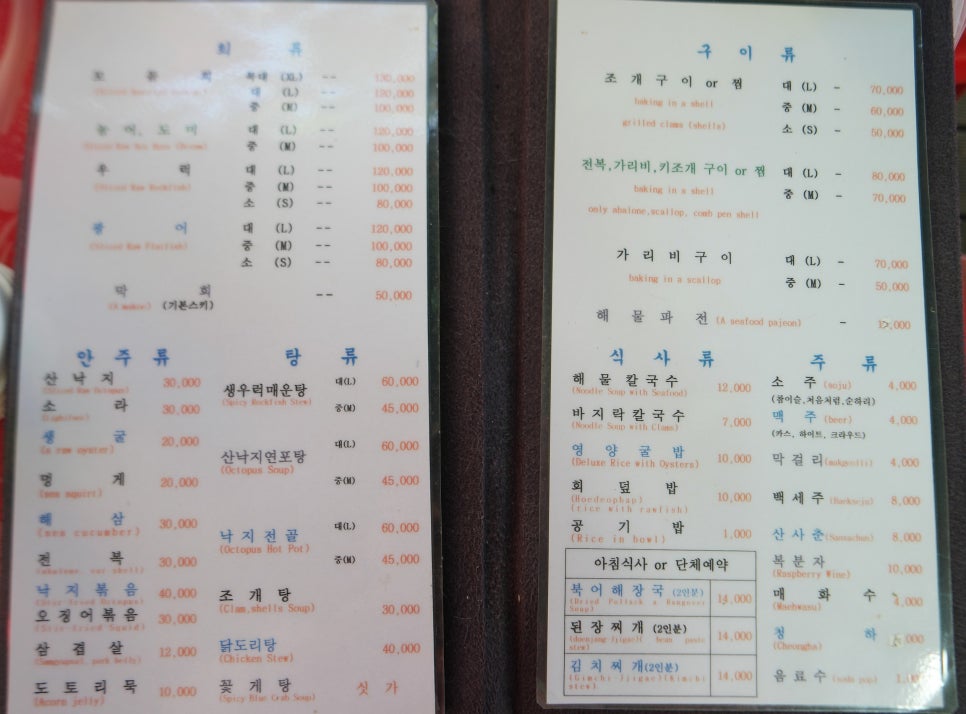 회 류
모 듬 회 특대 (XL) -- 130,000
대 (L) -- 120,000
중 (M) -- 100,000
농어, 도미 대 (L) -- 120,000
중 (M) -- 100,000
우 럭 대 (L) -- 120,000
(Sliced Raw Rockfish) 중 (M) -- 100,000
소 (S) -- 80,000
광 어 대 (L) -- 120,000
(Sliced Raw Flatfish) 중 (M) -- 100,000
소 (S) -- 80,000
막 회 -- 50,000
(기본스키)
안 주 류
산 낙 지 30,000
소 라 30,000
생 굴 20,000
(a raw oyster)
멍 게 20,000
(sea squirt)
해 삼 30,000
(sea cucumber)
전 복 30,000
낙 지 볶 음 40,000
(Stir-fried Octopus)
오징어볶음 30,000
(Stir-fried Squid)
삼 겹 살 12,000
(Samgyupsal, pork belly)
도 토 리 묵 10,000
(Acorn jelly)
탕 류
생우럭매운탕 대(L) 60,000
(Spicy Rockfish Stew) 중(M) 45,000
산낙지연포탕 대(L) 60,000
(Octopus Soup) 중(M) 45,000
낙 지 전 골 대(L) 60,000
(Octopus Hot Pot) 중(M) 45,000
조 개 탕
(Clam,shells Soup) 30,000
닭도리탕 40,000
(Chicken Stew)
꽃 게 탕 싯 가
(Spicy Blue Crab Soup)
구 이 류
조 개 구 이 or 찜 대 (L) - 70,000
baking in a shell 중 (M) - 60,000
grilled clams (shells) 소 (S) - 50,000
전복,가리비,키조개 구이 or 찜 대 (L) - 80,000
baking in a shell 중 (M) - 70,000
only abalone,scallop, comb pen shell
가 리 비 구 이 대 (L) - 70,000
baking in a scallop 중 (M) - 50,000
해 물 파 전 (A seafood pajeon) -
식 사 류
해 물 칼 국 수 12,000
(Noodle Soup with Seafood)
바 지 락 칼 국 수 7,000
(Noodle Soup with Clams)
영 양 굴 밥 10,000
(Deluxe Rice with Oysters)
회 덮 밥 10,000
(Hoedeopbap)
(rice with rawfish)
공 기 밥 1,000
(Rice in bowl)
아침식사 or 단체예약
북 어 해 장 국 (2인분) 14,000
(Dried Pollack a Hangover Soup)
된 장 찌 개 (2인분) 14,000
(doenjang-jjigae)( bean paste stew)
김 치 찌 개(2인분) 14,000
(Gimchi-Jjigae)(Kimchi stew)
주 류
소 주 (soju) 4,000
(참이슬,처음처럼,순하리)
맥 주 (beer) 4,000
(카스, 하이트, 크라우드)
막 걸 리 (makgeolli) 4,000
백 세 주 (Baekseju) 8,000
산 사 춘 (Sansachun) 8,000
복 분 자 10,000
(Raspberry Wine)
매 화 수 4,000
(Maehwasu)
청 하
(Cheongha)
음 료 수 (soda pop)